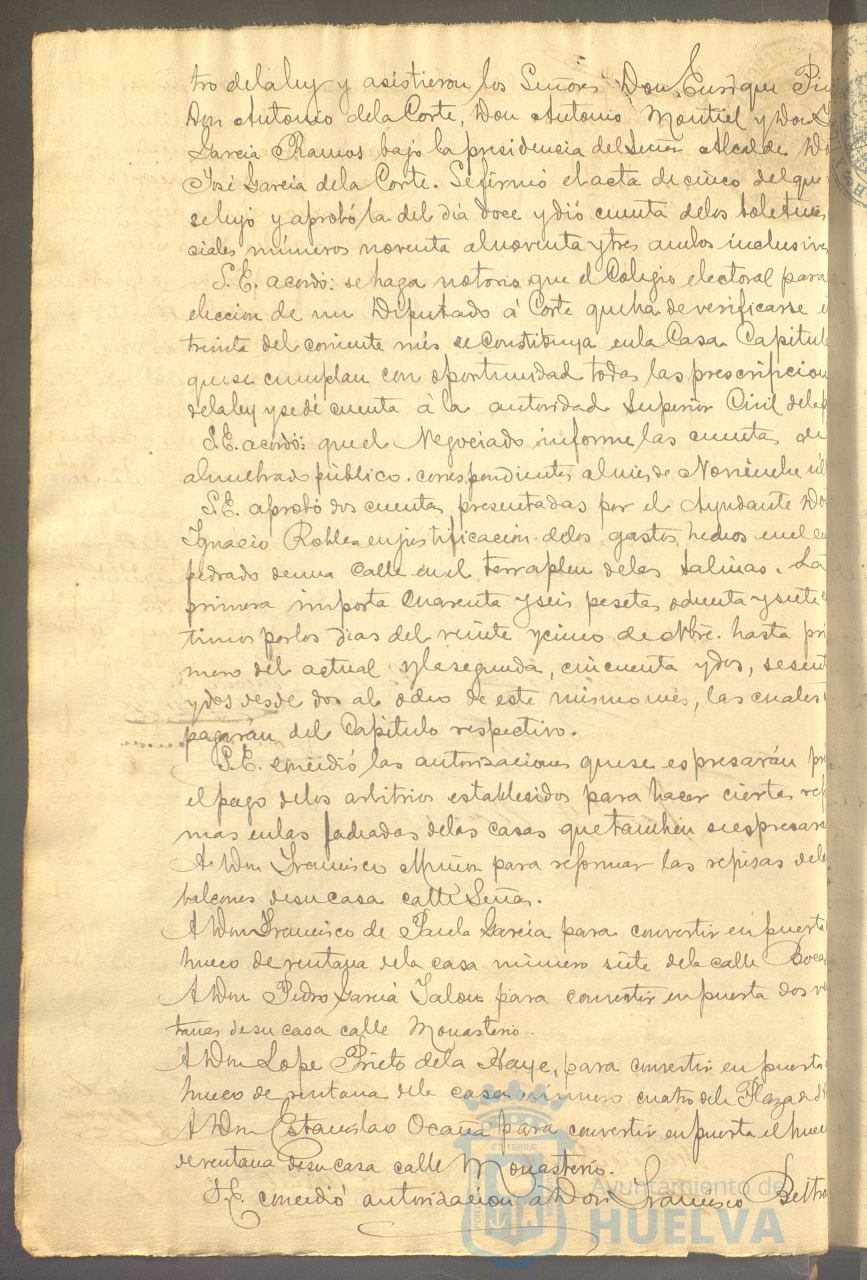 tro dela ley y asistieron los Señores Don Enrique
Don Antonio dela Corte, Don Antonio Montiel y Don
García Ramos bajo la presidencia del Señor Alcalde
José García dela Corte. Se firmó el acta de cinco del que
se leyó y aprobó la del día doce y dió cuenta delos boletines
ciales números noventa al noventa y tres ambos inclusive
S.E. acordó: se haga notorio que el Colegio electoral para
elección de un Diputado á Corte que ha de verificarse e
treinta del corriente mes se constituya en la Casa Capitul
que se cumplan con oportunidad todas las prescripcion
dela ley y se dé cuenta á la autoridad Superior Civil dela p
S.E. acordó: que el Negociado informe las cuentas de
alumbrado público correspondientes al mes de Noviembre úl
S.E. aprobó dos cuentas presentadas por el Ayudante Do
Ignacio Robles en justificación delos gastos hechos en el em
pedrado de una calle en el terraplen delas Salinas. La
primera importa cuarenta y seis pesetas ochenta y siete c
timos por los dias del veinte y cinco de Nbre. hasta pri
mero del actual y la segunda, cincuenta y dos, sesent
y dos desde dos al ocho de este mismo mes, las cuales
pagarán del Capítulo respectivo.
S.E. concedió las autorizaciones que se espresarán pr
el pago delos arbitrios establesidos para hacer ciertas ref
mas en las fachadas delas casas que tambien se espresara
A Don Francisco Muñoz para reformar las repisas delo
balcones de su casa calle Señas.
A Don Francisco de Paula García para convertir en puerta
hueco de ventana dela casa número siete dela calle Boca
A Don Pedro García Jalon para convertir en puerta dos v
tanas de su casa calle Monasterio.
A Don Lope Prieto dela Haye, para convertir en puerta
hueco de ventana dela casa número cuatro dela Plaza de
A Don Estanislao Ocaña para convertir en puerta el huec
de ventana de su casa calle Monasterio.
S.E. concedió autorización á Don Francisco Beltra
Ayuntamiento de
HUELVA